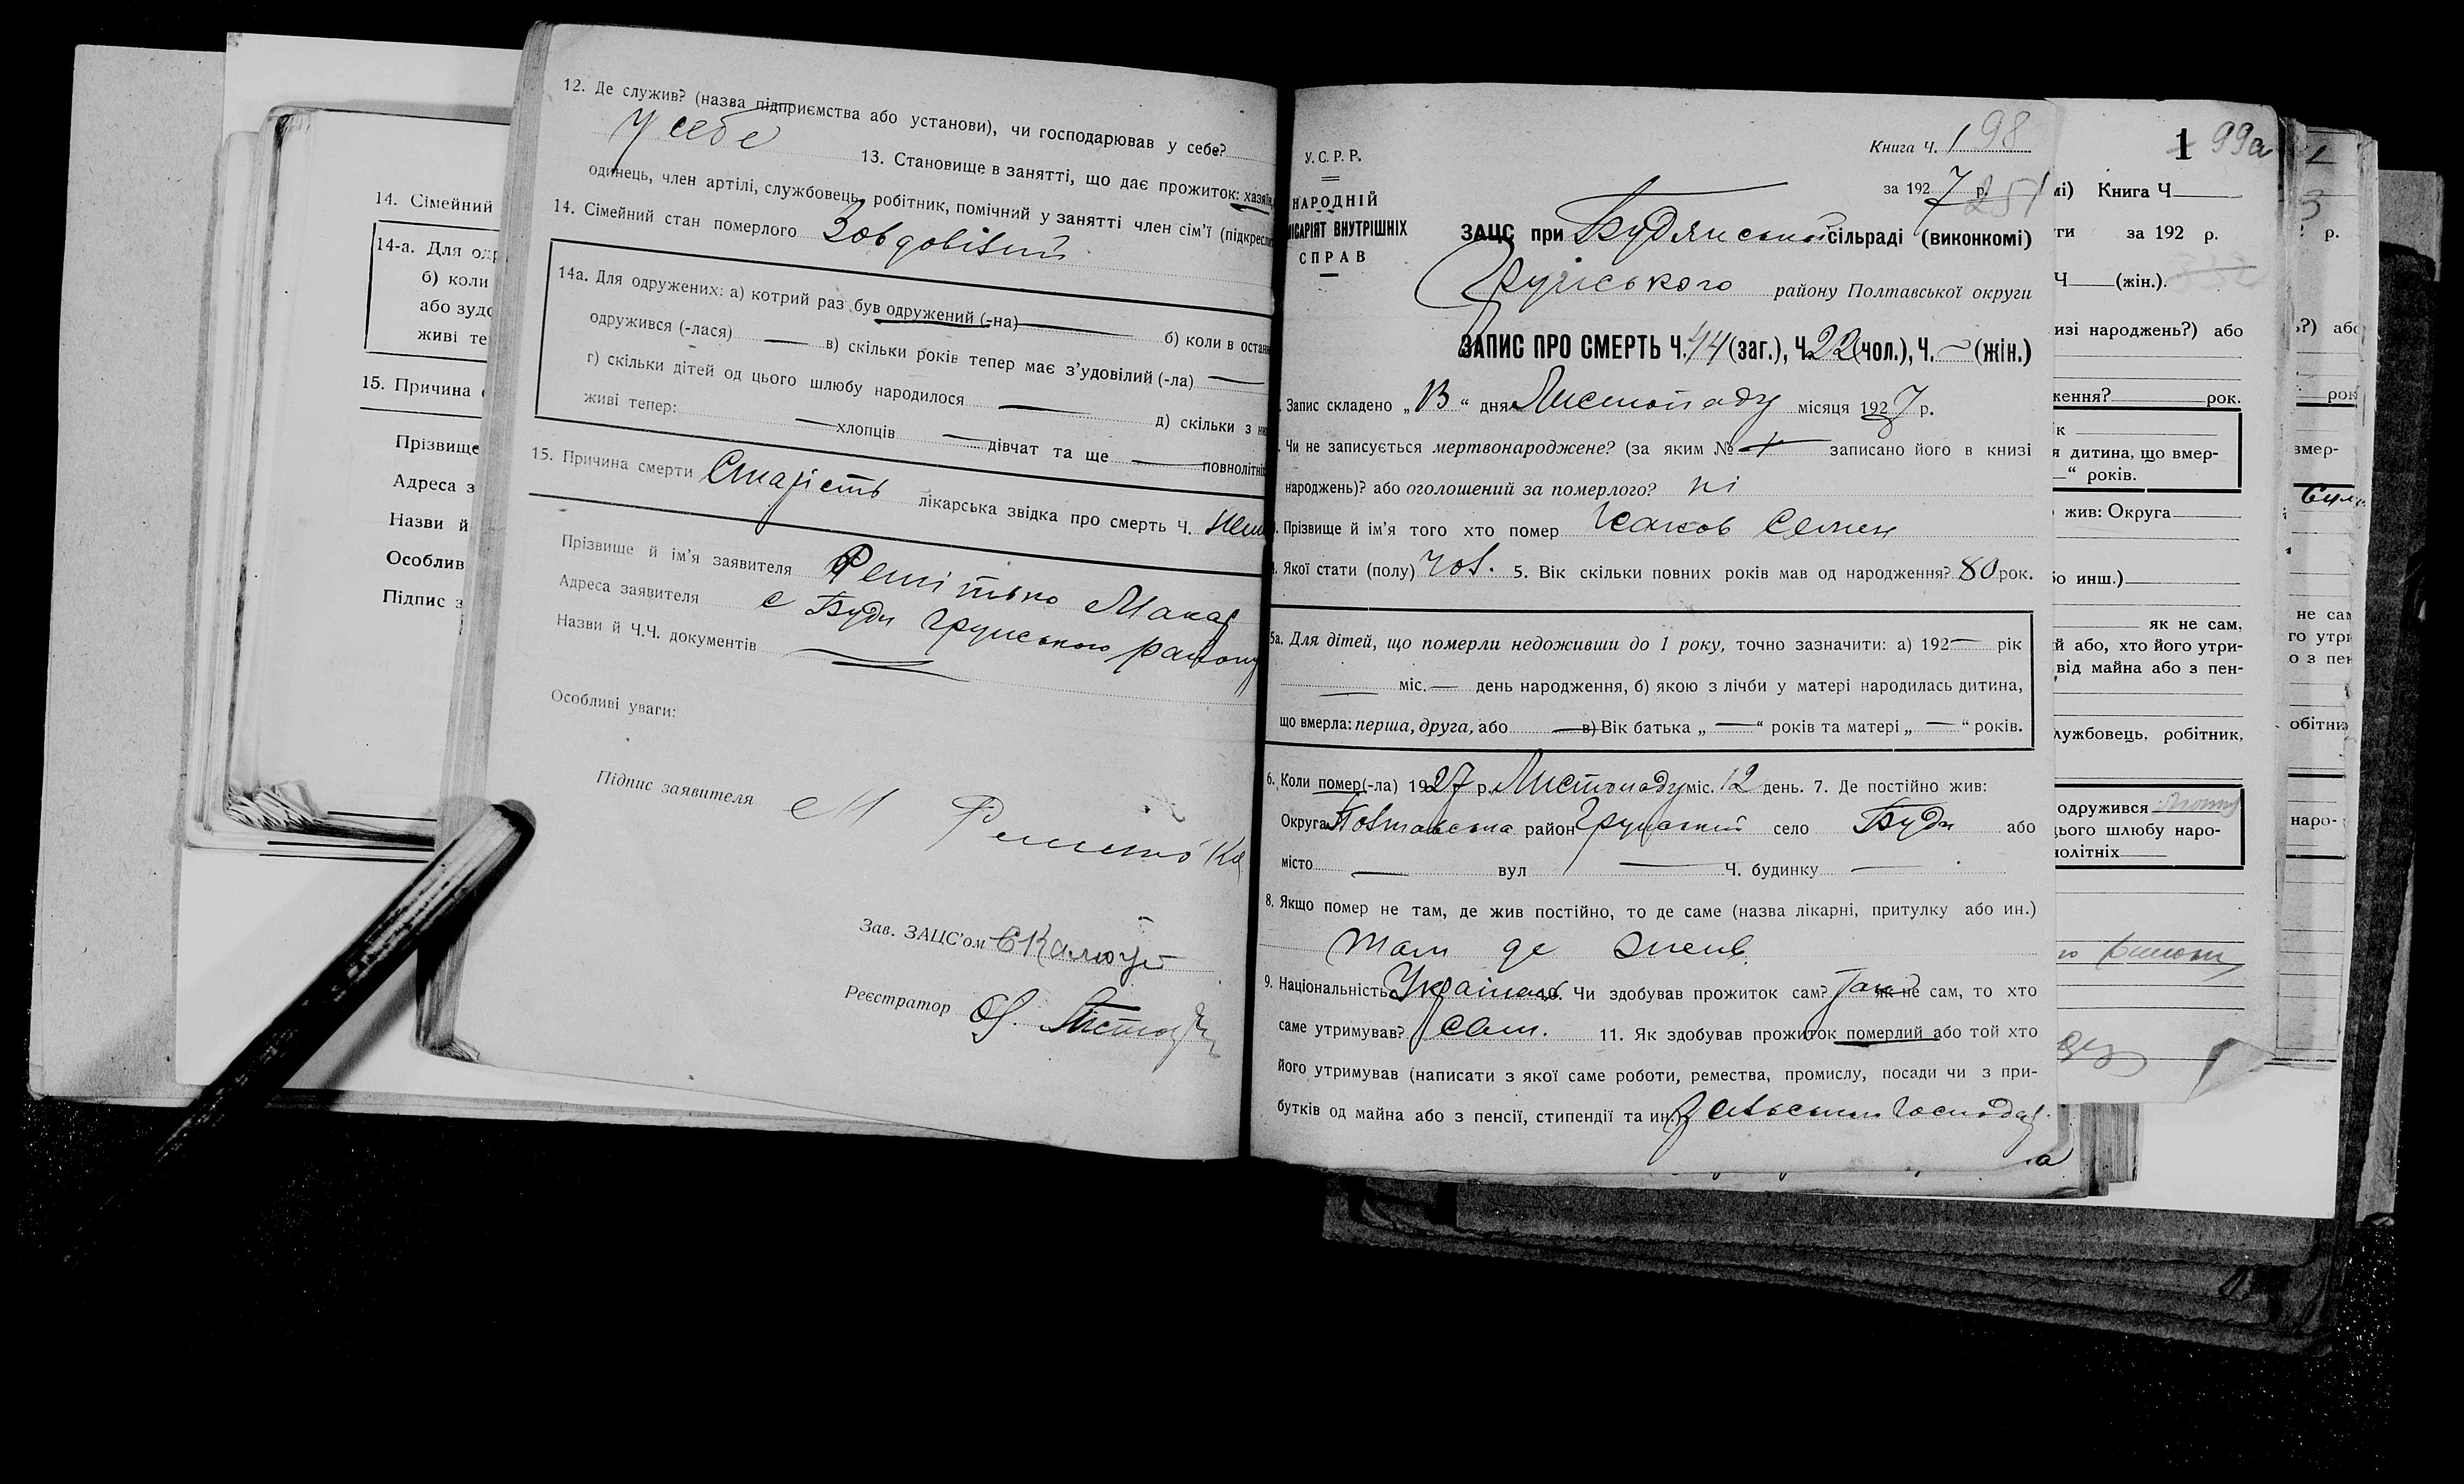 14. Сімейний
14-а. Для одр
б) коли
або зудо
живі те
15. Причина с
Прізвище
Адреса з
Назви й
Особлив
Підпис з
12. Де служив? (назва підприємства або установи), чи господарював у себе?
У себе
13. Становище в занятті, що дає прожиток: хазяїн,
одинець, член артілі, службовець, робітник, помічний у занятті член сім'ї (підкресли
14. Сімейний стан померлого Зовдовілий
14а. Для одружених: а) котрий раз був одружений (-на) — б) коли в остан
одружився (-лася) — в) скільки років тепер має з'удовілий (-ла) —
г) скільки дітей од цього шлюбу народилося — д) скільки з них
живі тепер: — хлопців — дівчат та ще — повнолітніх
15. Причина смерти Старість лікарська звідка про смерть Ч. Нема
Прізвище й ім'я заявителя Решітько Макар
Адреса заявителя с Буди Грунського району
Назви й Ч.Ч. документів —
Особливі уваги:
Підпис заявителя М Решетько
Зав. ЗАЦС'ом
Реєстратор
Книга Ч. 1 98
У.С.Р.Р.
за 1927 р. 251
НАРОДНІЙ
ІСАРІЯТ ВНУТРІШНІХ
СПРАВ
ЗАЦС при Будянській сільраді (виконкомі)
Грунського району Полтавської округи
ЗАПИС ПРО СМЕРТЬ Ч. 44 (заг.), Ч. 22 (чол.), Ч. — (жін.)
Запис складено „13“ дня Листопаду місяця 1927 р.
Чи не записується мертвонароджене? (за яким № — записано його в книзі
народжень)? або оголошений за померлого? ні
Прізвище й ім'я того хто помер Исаков Семен
Якої стати (полу) чол. 5. Вік скільки повних років мав од народження? 80 рок.
5а. Для дітей, що померли недоживши до 1 року, точно зазначити: а) 192— рік
— міс. — день народження, б) якою з лічби у матері народилась дитина,
що вмерла: перша, друга, або — в) Вік батька „—“ років та матері „—“ років.
6. Коли помер(-ла) 1927 р. Листопаду міс. 12 день. 7. Де постійно жив:
Округа Полтавська район Грунський село Буди або
місто — вул — Ч. будинку —
8. Якщо помер не там, де жив постійно, то де саме (назва лікарні, притулку або ин.)
там де жив
9. Національність Українець. Чи здобував прожиток сам? так як не сам, то хто
саме утримував? сам. 11. Як здобував прожиток померлий або той хто
його утримував (написати з якої саме роботи, ремества, промислу, посади чи з при-
бутків од майна або з пенсії, стипендії та ин. сільським господар.
1 99а
мі) Книга Ч
ги за 192 р.
Ч (жін.).
изі народжень?) або
ження? рок.
ік
я дитина, що вмер-
“ років.
жив: Округа
бо инш.)
як не сам,
й або, хто його утри-
від майна або з пен-
лужбовець, робітник,
одружився
цього шлюбу наро-
нолітніх
3
р.
ь?) або
рок
вмер-
не сам
го утри
о з пен
обітник
наро-